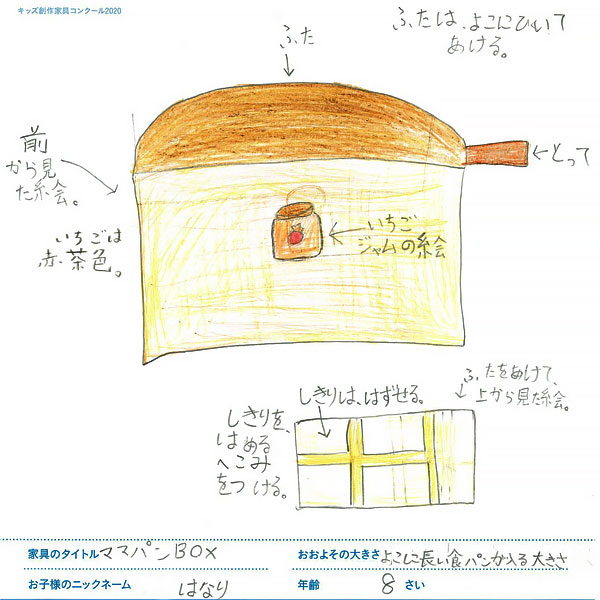 キッズ創作家具コンクール2020
ふたは、よこにひいて
あける。
ふた
前
から見
た絵。
←とって
いちごは
赤茶色。
←いちご
ジャムの絵
ふたをあけて、
上から見た絵。
しきりは、はずせる。
しきりを、
はめる
へこみ
をつける。
家具のタイトル ママパンBOX
おおよその大きさ よこに長い食パンが入る大きさ
お子様のニックネーム はなり
年齢 8 さい